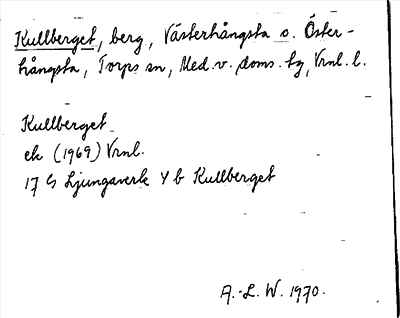 Kullberget, berg, Västerhångsta o. Öster-
hångsta, Torps sn, Med. v. doms. tg, Vrnl. l.
Kullberget
ek (1969) Vrnl.
17 G Ljungaverk 4 b Kullberget
A.-L. W. 1970.